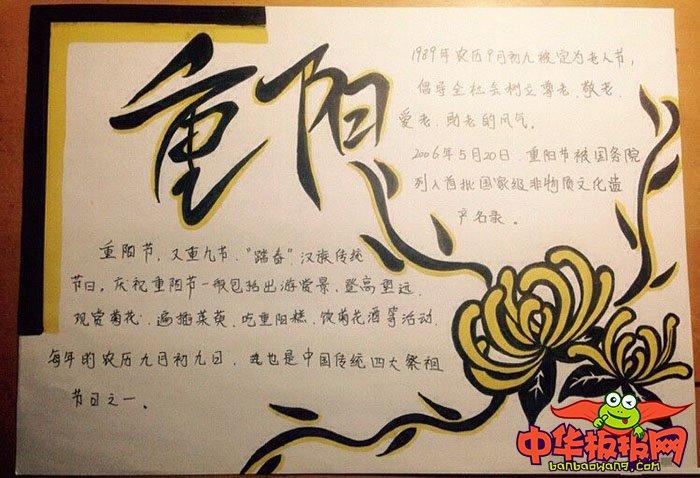 重阳
1989年农历9月初九被定为老人节，
倡导全社会树立尊老、敬老、
爱老、助老的风气。
2006年5月20日，重阳节被国务院
列入首批国家级非物质文化遗
产名录。
重阳节，又重九节、“踏春”，汉族传统
节日。庆祝重阳节一般包括出游赏景、登高望远、
观赏菊花、遍插茱萸、吃重阳糕、饮菊花酒等活动，
每年的农历九月初九日，也是中国传统四大祭祖
节日之一。
中华板报网
banbaowang.com